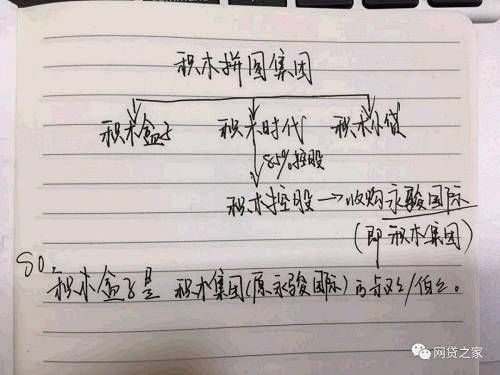 积木拼图集团
积木盒子 积木时代 积木小贷
85%控股
积木控股→收购永骏国际
(即积木集团)
SO,
积木盒子是 积木集团(原永骏国际)的叔叔/伯伯。
网贷之家